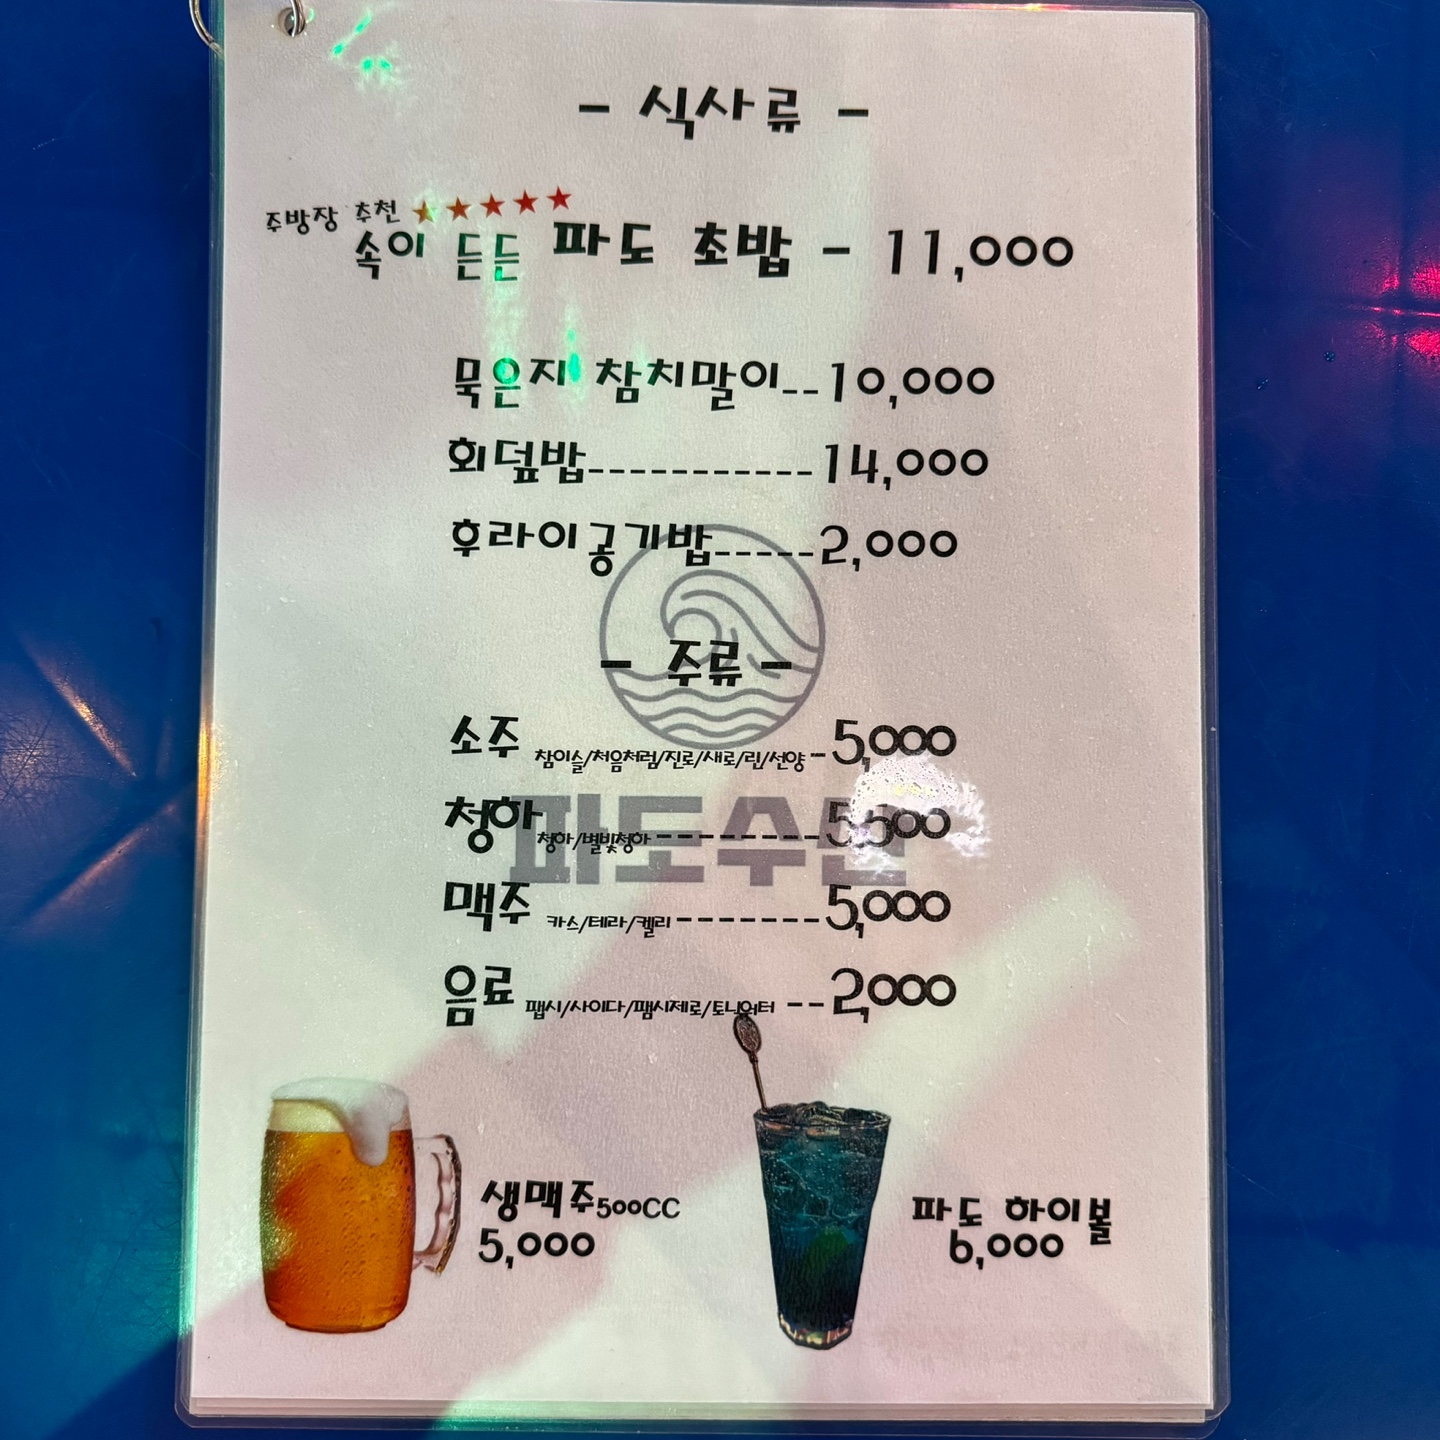 - 식사류 -
주방장 추천 ★★★★★
속이 든든 파도 초밥 - 11,000
묵은지 참치말이--10,000
회덮밥-----------14,000
후라이공기밥-----2,000
- 주류 -
소주 참이슬/처음처럼/진로/새로/린/선양 -5,000
청하 청하/별빛청하--------5,500
파도수산
맥주 카스/테라/켈리-------5,000
음료 팹시/사이다/팸시제로/토니워터 --2,000
생맥주500CC
5,000
파도 하이볼
6,000